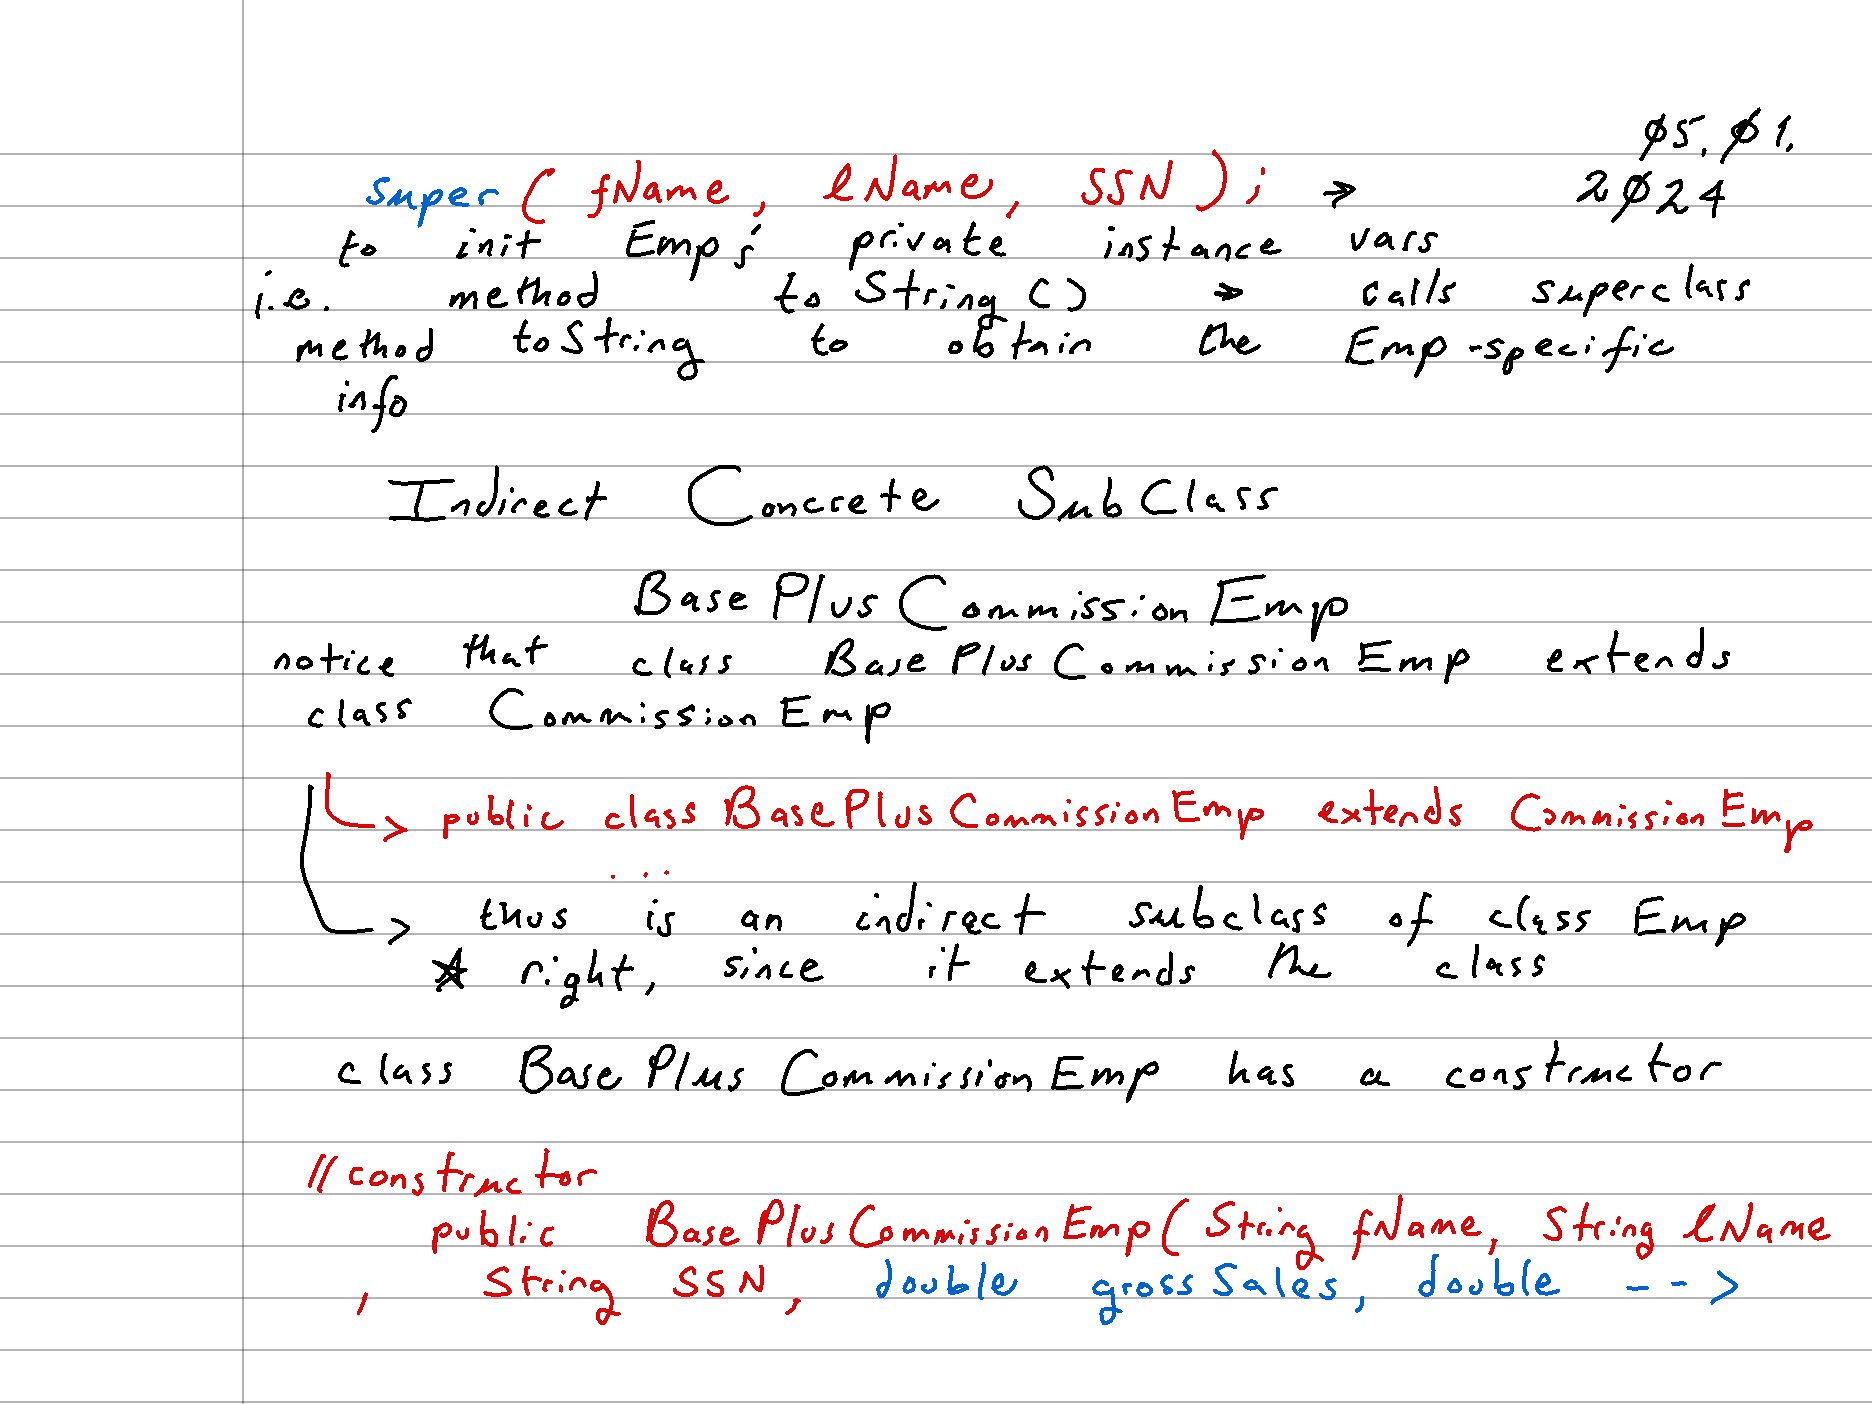 05.01.
super ( fName, lName, SSN ); → 2024
to init Emp's private instance vars
i.e. method toString () → calls superclass
method toString to obtain the Emp-specific
info
Indirect Concrete SubClass
BasePlusCommissionEmp
notice that class BasePlusCommissionEmp extends
class CommissionEmp
public class BasePlusCommissionEmp extends CommissionEmp
...
thus is an indirect subclass of class Emp
★ right, since it extends the class
class BasePlusCommissionEmp has a constructor
// constructor
public BasePlusCommissionEmp( String fName, String lName
, String SSN, double grossSales, double -->